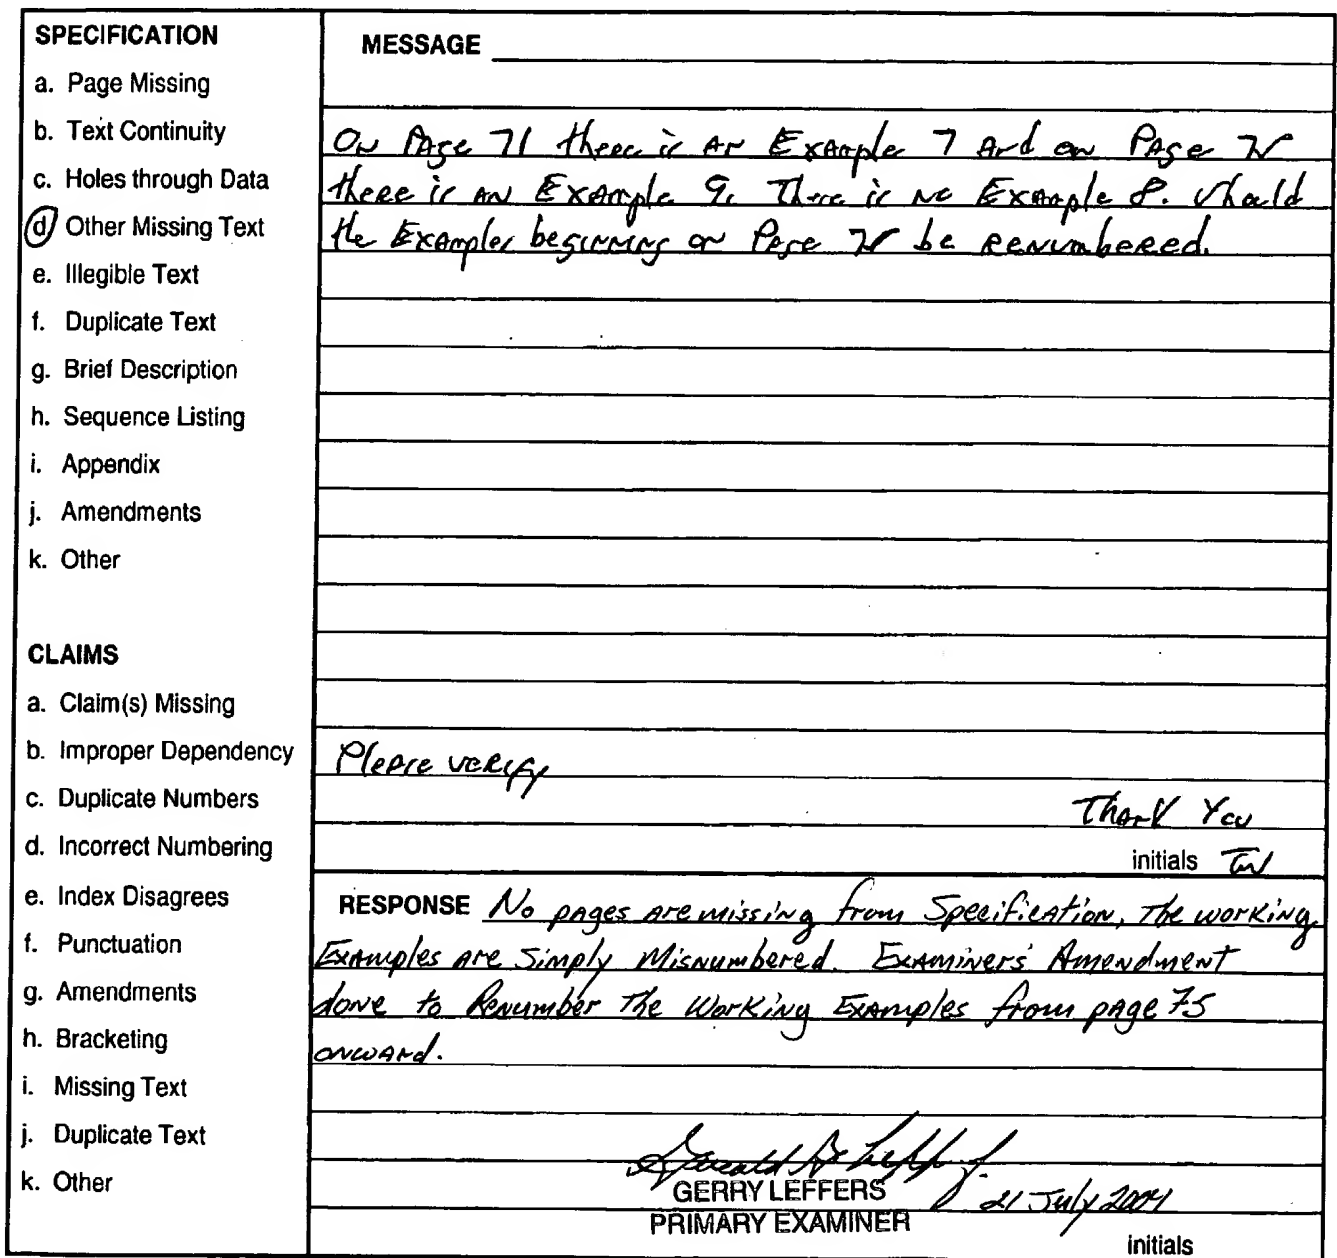 SPECIFICATION
a. Page Missing
b. Text Continuity
c. Holes through Data
d Other Missing Text
e. Illegible Text
f. Duplicate Text
g. Brief Description
h. Sequence Listing
i. Appendix
j. Amendments
k. Other
CLAIMS
a. Claim(s) Missing
b. Improper Dependency
c. Duplicate Numbers
d. Incorrect Numbering
e. Index Disagrees
f. Punctuation
g. Amendments
h. Bracketing
i. Missing Text
j. Duplicate Text
k. Other
MESSAGE
On Page 71 there is an Example 7 And on Page 75
there is an Example 9. There is no Example 8. Should
the Examples beginning on Page 75 be renumbered.
Please verify
Thank You
initials TW
RESPONSE No pages are missing from Specification, The working
Examples are simply Misnumbered. Examiner's Amendment
done to Renumber The Working Examples from page 75
onward.
GERRY LEFFERS
PRIMARY EXAMINER
21 July 2004
initials